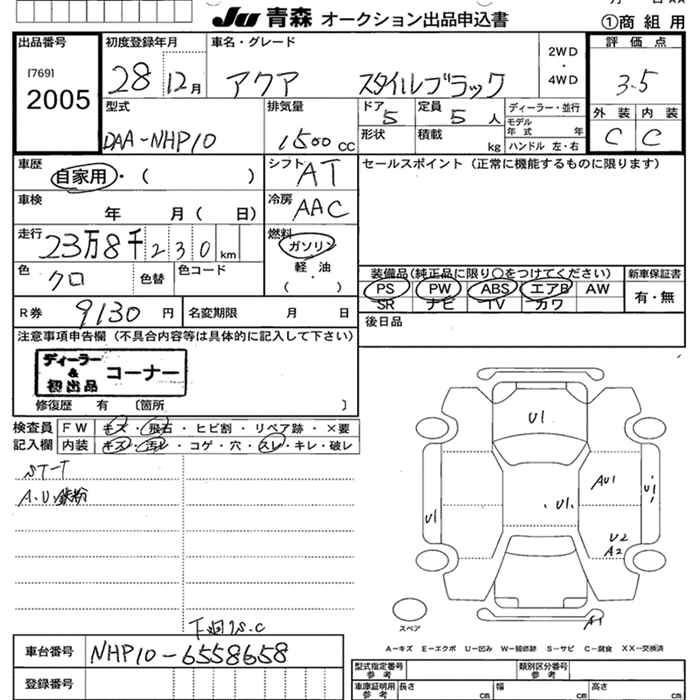 JU 青森 オークション出品申込書
①商組用
出品番号
[769]
2005
初度登録年月
28 12月
車名・グレード
アクア スタイルブラック
2WD
・
4WD
評価点
3.5
外装 内装
C C
型式
DAA-NHP10
排気量
1500cc
ドア
5
定員
5人
形状
積載
kg
ディーラー・並行
モデル年式 年
ハンドル 左・右
車歴
自家用・( )
シフト
AT
セールスポイント (正常に機能するものに限ります)
車検
年 月( 日)
冷房
AAC
走行
23万8千230km
燃料
ガソリン
軽・油
( )
色
クロ
色替
色コード
装備品(純正品に限り○をつけてください)
PS PW ABS エアB AW
SR ナビ TV カワ
新車保証書
有・無
R券
9130円
名変期限 月 日
後日品
注意事項申告欄 (不具合内容等は具体的に記入して下さい)
ディーラー
&
初出品
コーナー
修復歴 有 〔箇所 〕
検査員記入欄
FW キズ・飛石・ヒビ割・リペア跡・×要
内装 キズ・汚レ・コゲ・穴・スレ・キレ・破レ
ST-T
A.U.鉄粉
U1
U1
U1.
AU1
U1
U2
A2
A1
スペア
下廻りS.C
A-キズ E-エクボ U-凹み W-補修跡 S-サビ C-腐食 XX-交換済
車台番号
NHP10-6558658
登録番号
型式指定番号
参考
類別区分番号
参考
車庫証明用
参考
長さ cm
幅 cm
高さ cm